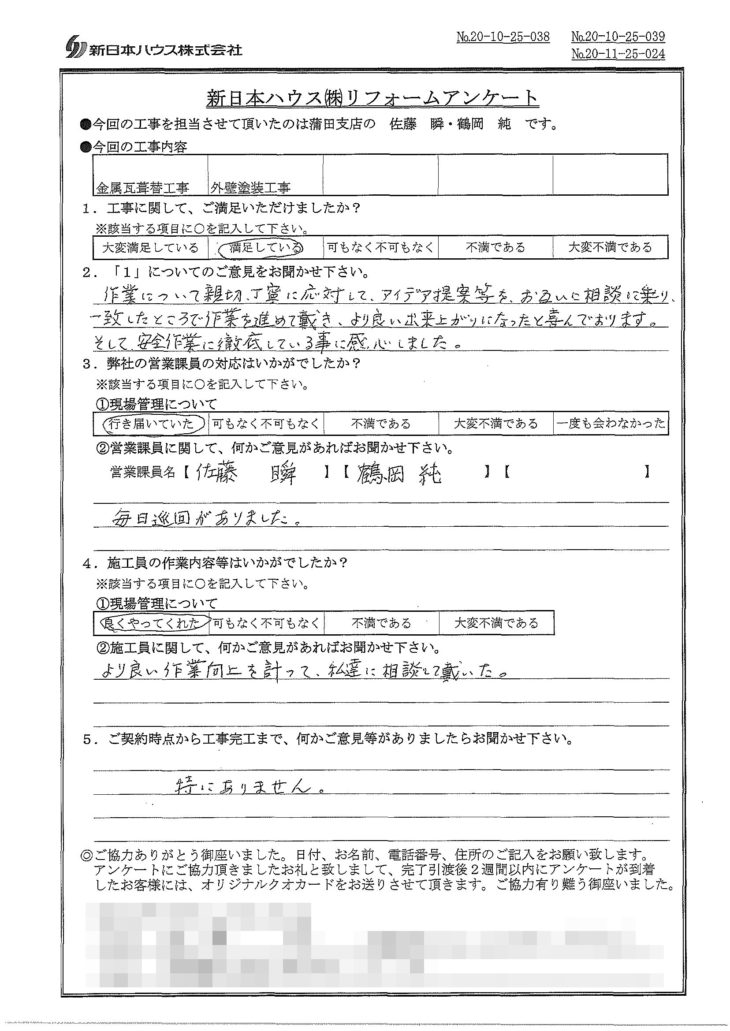 新日本ハウス株式会社
№20-10-25-038 №20-10-25-039
№20-11-25-024
新日本ハウス㈱リフォームアンケート
●今回の工事を担当させて頂いたのは蒲田支店の 佐藤 瞬・鶴岡 純 です。
●今回の工事内容
金属瓦葺替工事 外壁塗装工事
1．工事に関して、ご満足いただけましたか？
※該当する項目に○を記入して下さい。
大変満足している 満足している 可もなく不可もなく 不満である 大変不満である
2．「1」についてのご意見をお聞かせ下さい。
作業について親切、丁寧に応対して、アイデア提案等を、お互いに相談に乗り、
一致したところで作業を進めて戴き、より良い出来上がりになったと喜んでおります。
そして安全作業に徹底している事に感心しました。
3．弊社の営業課員の対応はいかがでしたか？
※該当する項目に○を記入して下さい。
①現場管理について
行き届いていた 可もなく不可もなく 不満である 大変不満である 一度も会わなかった
②営業課員に関して、何かご意見があればお聞かせ下さい。
営業課員名【 佐藤 瞬 】【 鶴岡 純 】【 】
毎日巡回がありました。
4．施工員の作業内容等はいかがでしたか？
※該当する項目に○を記入して下さい。
①現場管理について
良くやってくれた 可もなく不可もなく 不満である 大変不満である
②施工員に関して、何かご意見があればお聞かせ下さい。
より良い作業向上を計って、私達に相談して戴いた。
5．ご契約時点から工事完工まで、何かご意見等がありましたらお聞かせ下さい。
特にありません。
◎ご協力ありがとう御座いました。日付、お名前、電話番号、住所のご記入をお願い致します。
アンケートにご協力頂きましたお礼と致しまして、完了引渡後２週間以内にアンケートが到着
したお客様には、オリジナルクオカードをお送りさせて頂きます。ご協力有り難う御座いました。